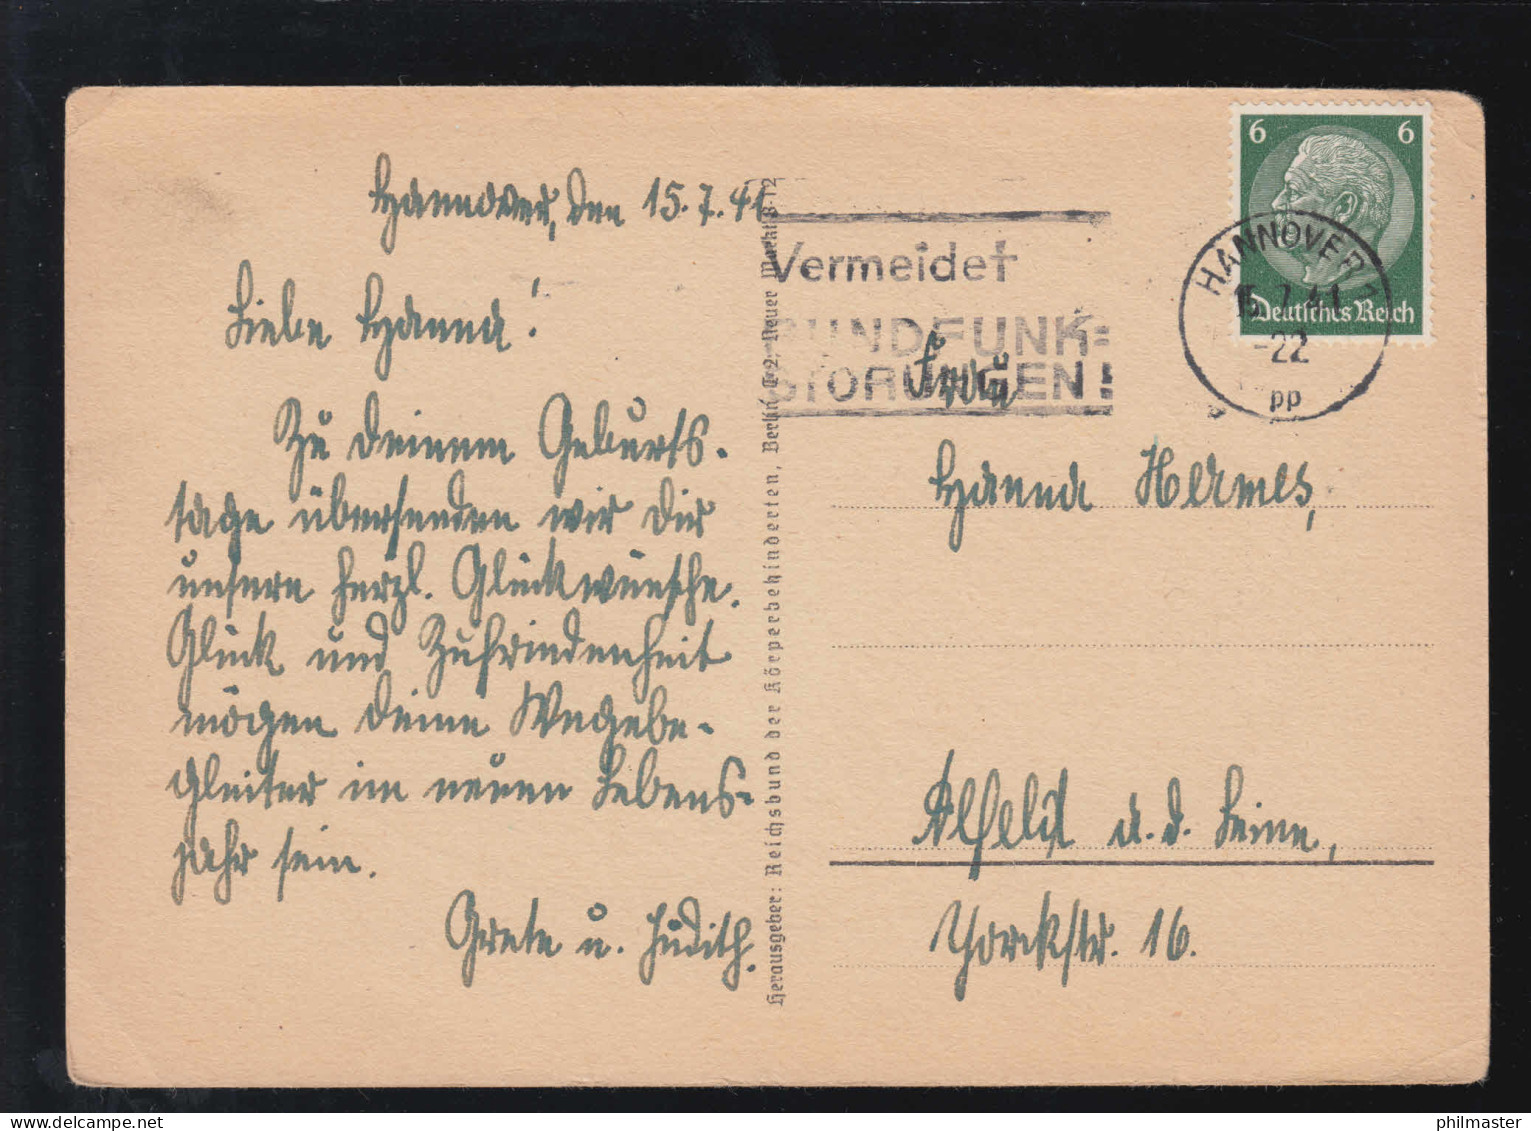 Hannover, den 15.7.41
Liebe Hanna!
Zu Deinem Geburts-
tage übersenden wir Dir
unsere herzl. Glückwünsche.
Glück und Zufriedenheit
mögen Deine Wegebe-
gleiter im neuen Lebens-
jahr sein.
Grete u. Judith.
Herausgeber: Reichsbund der Körperbehinderten, Berlin C 2, Neuer Markt 8-12
Vermeidet
RUNDFUNK=
STÖRUNGEN!
6 6
Deutsches Reich
HANNOVER 1
15.7.41
-22
pp
Frau
Hanna Hermes,
Alfeld a.d. Leine,
Yorckstr. 16.
philmaster